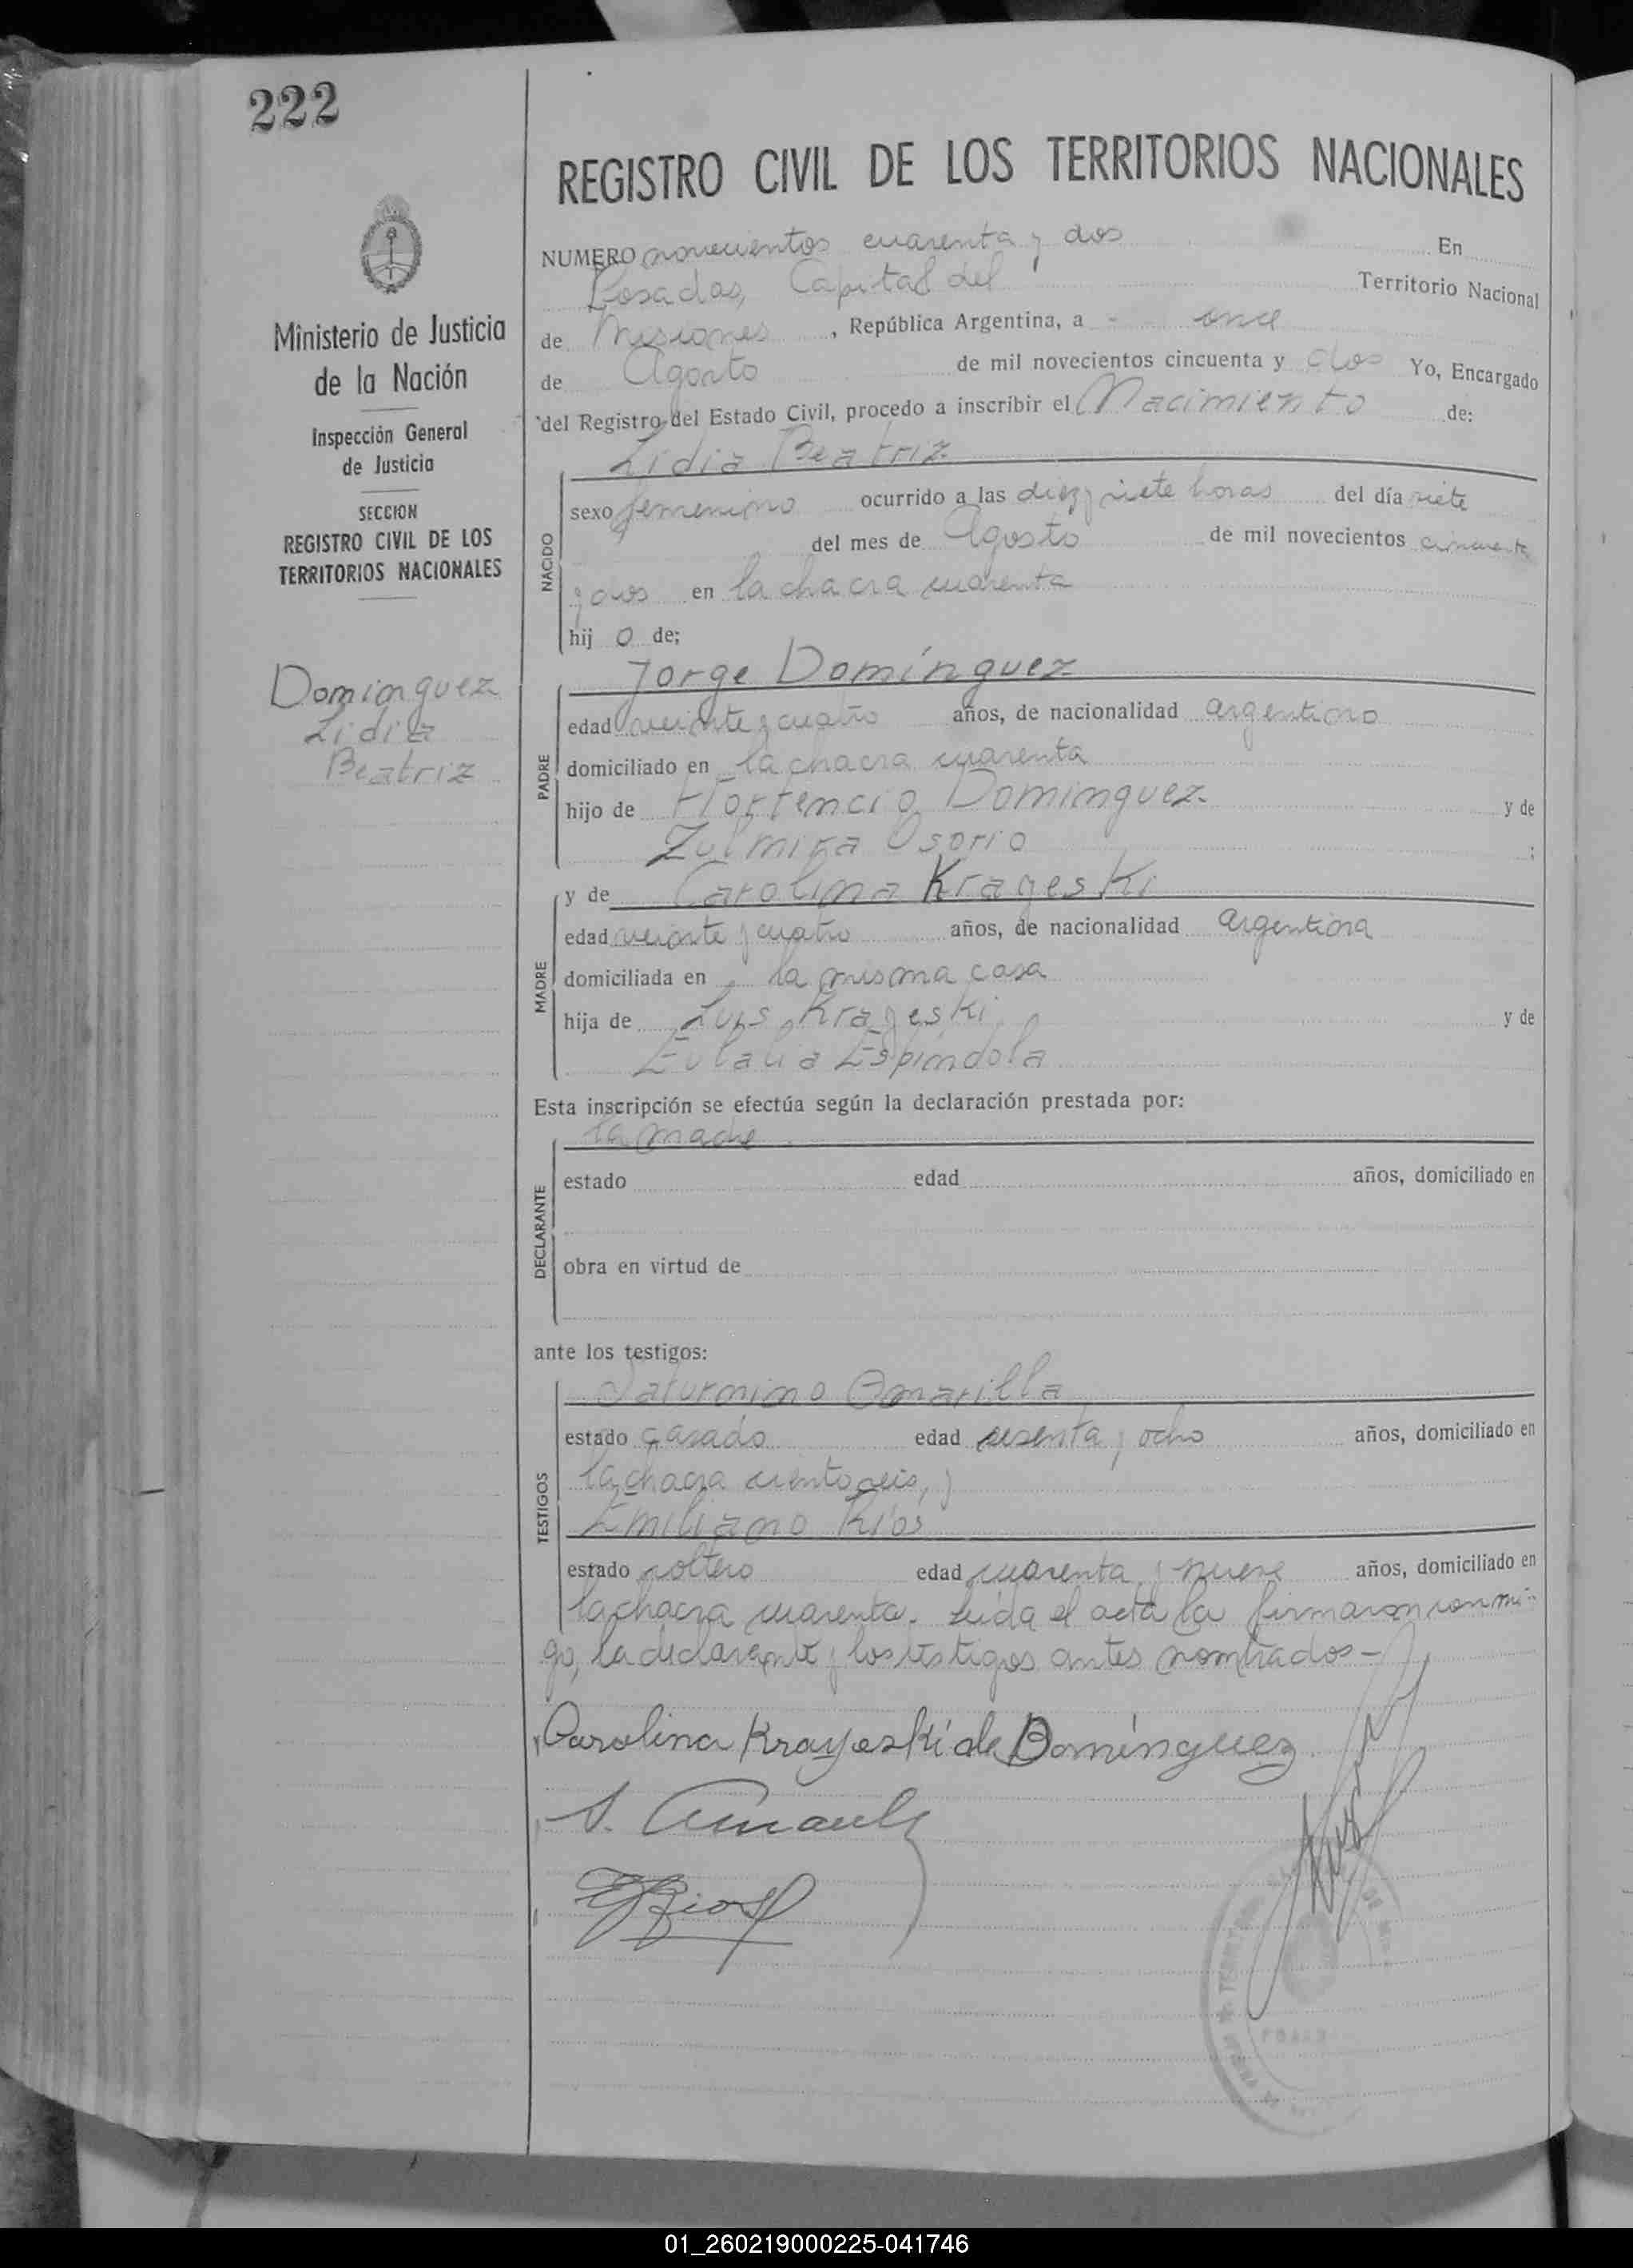 222
REGISTRO CIVIL DE LOS TERRITORIOS NACIONALES
Ministerio de Justicia
de la Nación
Inspección General
de Justicia
SECCION
REGISTRO CIVIL DE LOS
TERRITORIOS NACIONALES
Dominguez
Lidia
Beatriz
NUMERO novecientos cuarenta y dos En
Posadas, Capital del Territorio Nacional
de Misiones, República Argentina, a - once
de Agosto de mil novecientos cincuenta y dos Yo, Encargado
del Registro del Estado Civil, procedo a inscribir el Nacimiento de:
Lidia Beatriz
NACIDO
sexo femenino ocurrido a las diez y siete horas del día siete
del mes de Agosto de mil novecientos cincuenta
y dos en la chacra cuarenta
hij o de;
Jorge Domínguez
PADRE
edad veinte y cuatro años, de nacionalidad argentino
domiciliado en la chacra cuarenta
hijo de Hortencio Dominguez y de
Zulmira Osorio ;
MADRE
y de Carolina Krayeski
edad veinte y cuatro años, de nacionalidad argentina
domiciliada en la misma casa
hija de Luis Krayeski y de
Eulalia Espíndola
Esta inscripción se efectúa según la declaración prestada por:
la madre
DECLARANTE
estado edad años, domiciliado en
obra en virtud de
ante los testigos:
TESTIGOS
Saturnino Amarilla
estado casado edad sesenta y ocho años, domiciliado en
la chacra ciento seis, y
Emiliano Ríos
estado soltero edad cuarenta y nueve años, domiciliado en
la chacra cuarenta. Leída el acta la firmaron conmi-
go, la declarante y los testigos antes nombrados -
Carolina Krayeski de Domínguez
S. Amarilla
E Rios
01_260219000225-041746